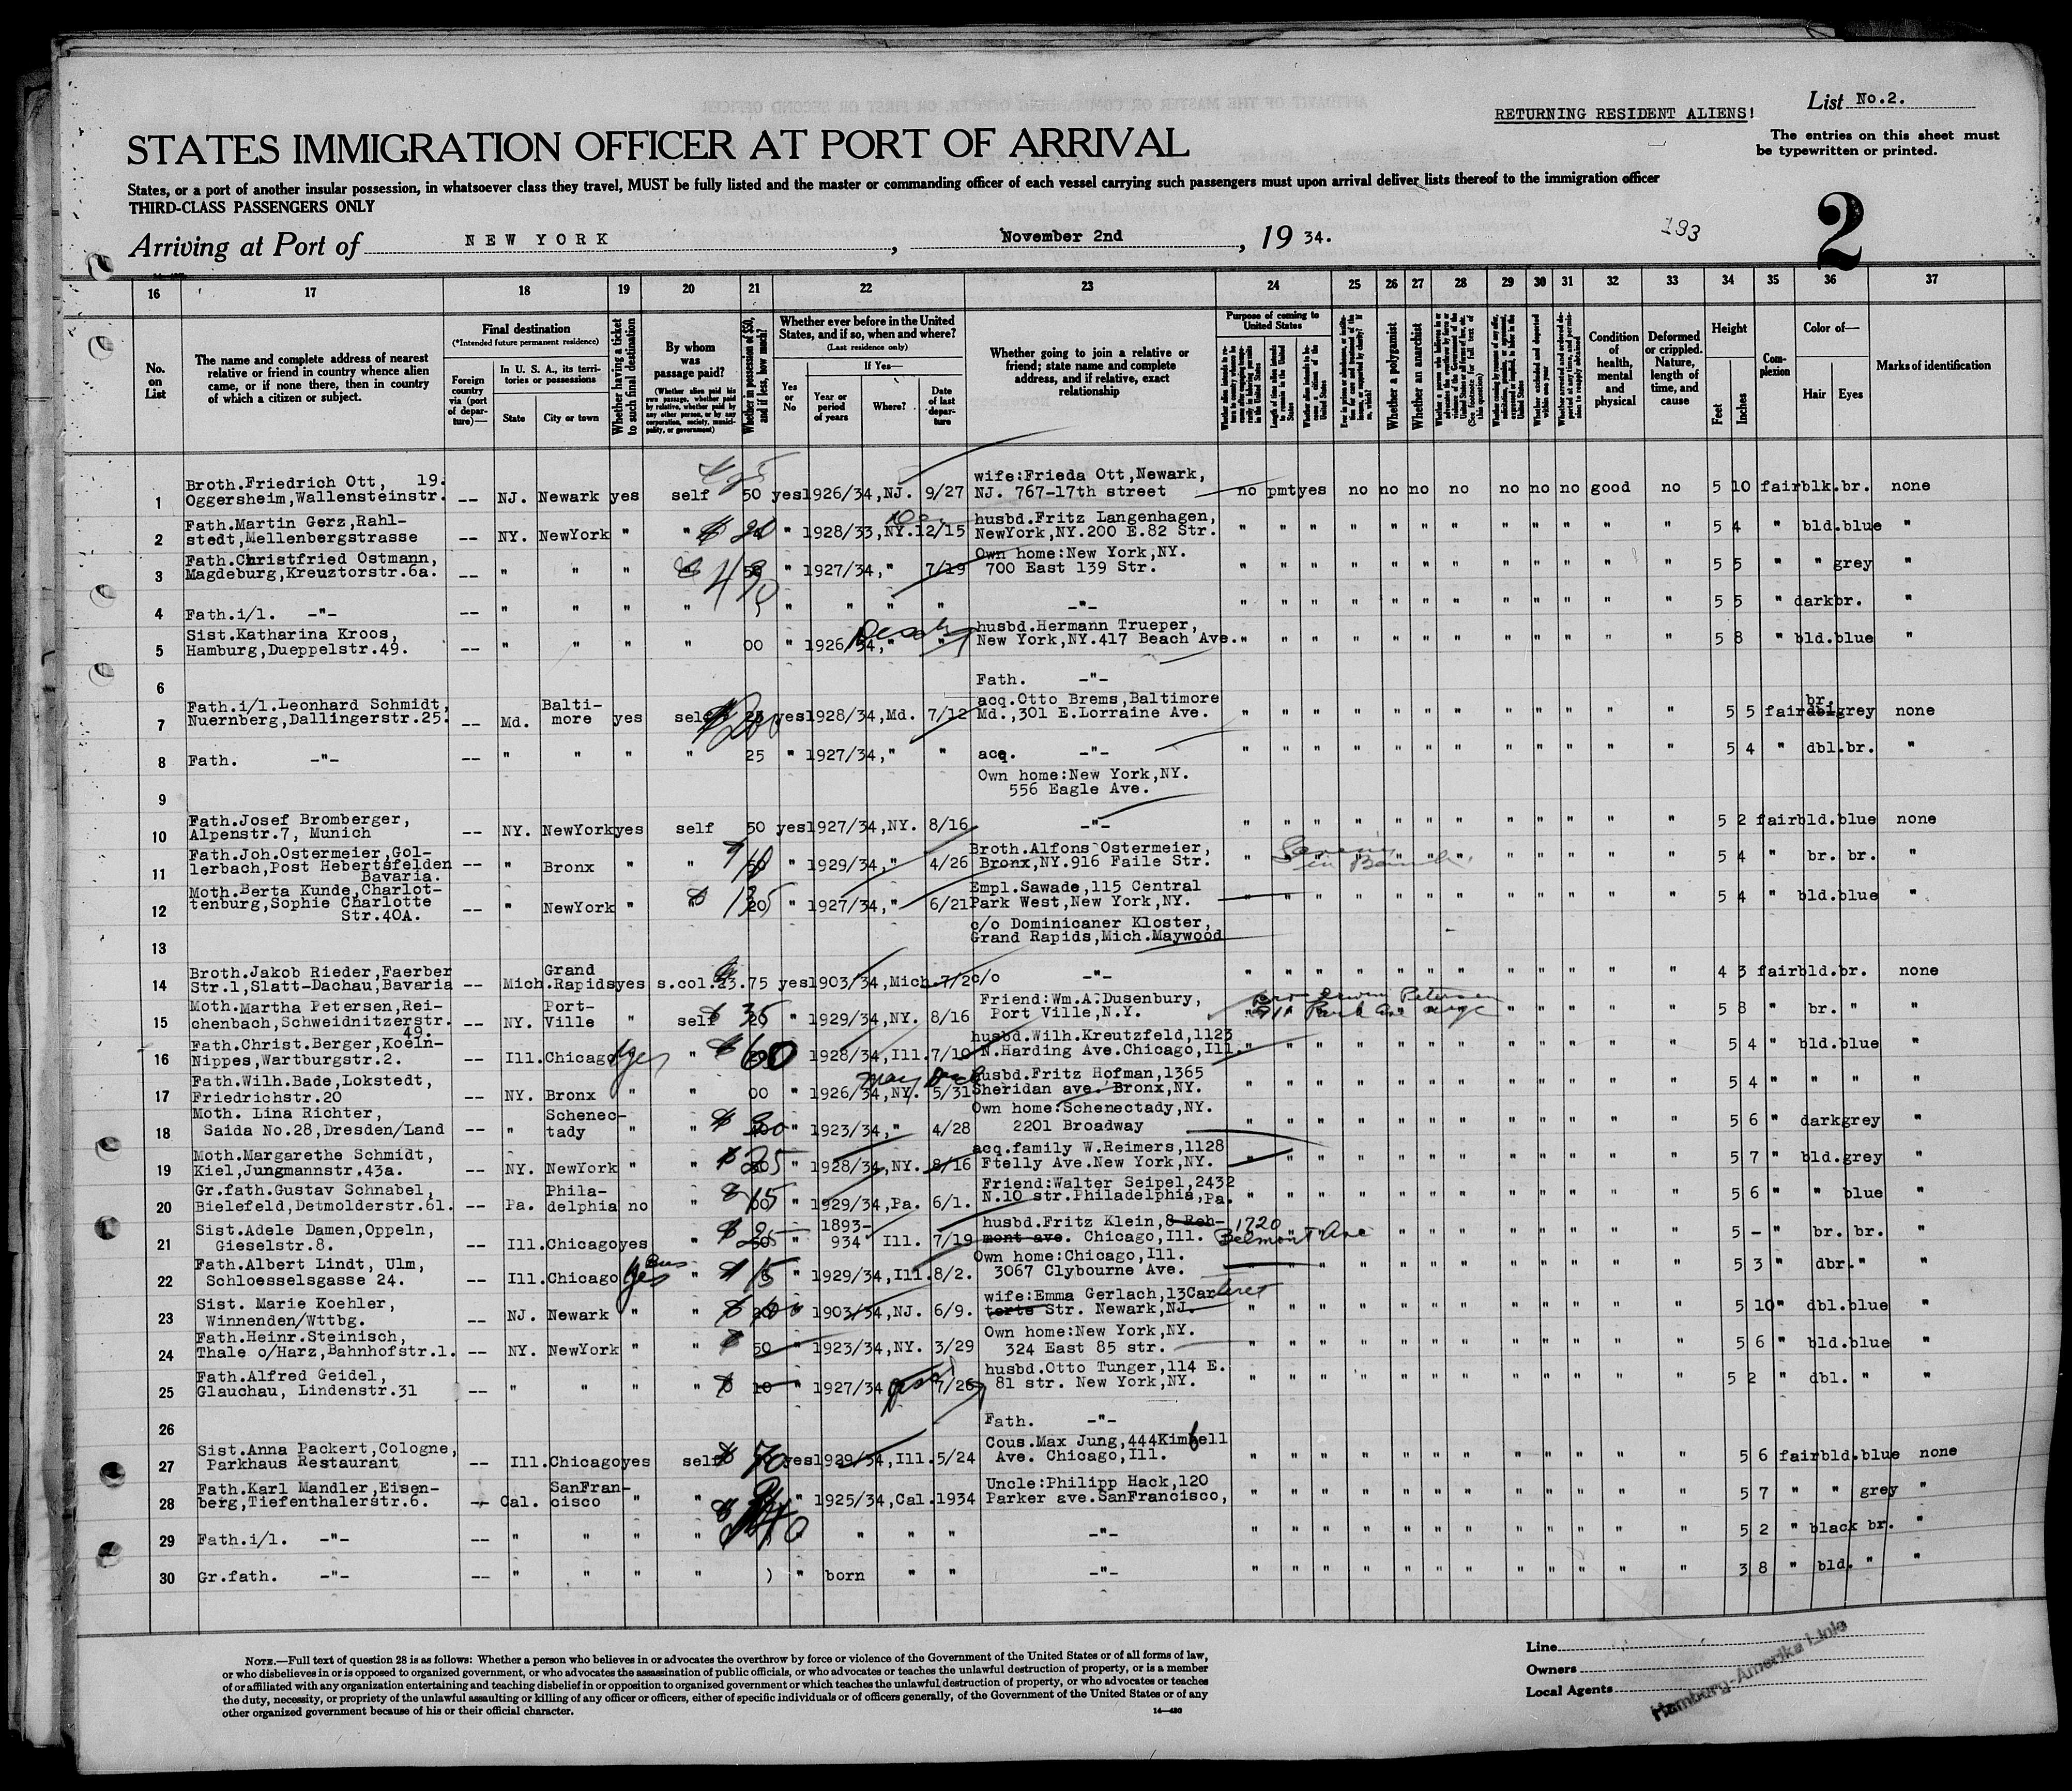 RETURNING RESIDENT ALIENS!
List No.2.
STATES IMMIGRATION OFFICER AT PORT OF ARRIVAL
The entries on this sheet must
be typewritten or printed.
States, or a port of another insular possession, in whatsoever class they travel, MUST be fully listed and the master or commanding officer of each vessel carrying such passengers must upon arrival deliver lists thereof to the immigration officer
THIRD-CLASS PASSENGERS ONLY
2
Arriving at Port of NEW YORK, November 2nd, 19 34.
193
16 17 18 19 20 21 22 23 24 25 26 27 28 29 30 31 32 33 34 35 36 37
No. on List
The name and complete address of nearest relative or friend in country whence alien came, or if none there, then in country of which a citizen or subject.
Final destination
(*Intended future permanent residence)
Foreign country via (port of departure)—
In U. S. A., its territories or possessions
State
City or town
Whether having a ticket to such final destination
By whom was passage paid?
(Whether alien paid his own passage, whether paid by relative, whether paid by any other person, or by any corporation, society, municipality, or government)
Whether in possession of $50, and if less, how much?
Whether ever before in the United States, and if so, when and where?
(Last residence only)
Yes or No
If Yes—
Year or period of years
Where?
Date of last departure
Whether going to join a relative or friend; state name and complete address, and if relative, exact relationship
Purpose of coming to United States
Length of time alien intends to remain in the United States
Whether alien intends to become a citizen of the United States
Whether a polygamist
Whether an anarchist
(See footnote for full text of this question)
Whether excluded and deported within one year
Condition of health, mental and physical
Deformed or crippled. Nature, length of time, and cause
Height
Feet
Inches
Complexion
Color of—
Hair
Eyes
Marks of identification
1 Broth.Friedrich Ott, 19. Oggersheim,Wallensteinstr. -- NJ. Newark yes self 50 yes 1926/34,NJ. 9/27 wife:Frieda Ott,Newark, NJ. 767-17th street no pmt yes no no no no no no no good no 5 10 fair blk. br. none
2 Fath.Martin Gerz,Rahlstedt,Mellenbergstrasse -- NY. NewYork " " " 1928/33,NY. 12/15 husbd.Fritz Langenhagen, NewYork,NY.200 E.82 Str. " " " " " " " " " " " " 5 4 " bld. blue "
3 Fath.Christfried Ostmann, Magdeburg,Kreuztorstr.6a. -- " " " " 1927/34," 7/19 Own home:New York,NY. 700 East 139 Str. " " " " " " " " " " " " 5 5 " " grey "
4 Fath.i/l. -"- -- " " " " " " " " -"- " " " " " " " " " " " " 5 5 " dark br. "
5 Sist.Katharina Kroos, Hamburg,Dueppelstr.49. -- " " " " 00 " 1926/34," " husbd.Hermann Trueper, New York,NY.417 Beach Ave. " " " " " " " " " " " " 5 8 " bld. blue "
6 Father. -"-
7 Fath.i/l.Leonhard Schmidt, Nuernberg,Dallingerstr.25. -- Md. Baltimore yes self yes 1928/34,Md. 7/12 acq.Otto Brems,Baltimore Md.,301 E.Lorraine Ave. " " " " " " " " " " " " 5 5 fair br. grey none
8 Fath. -"- -- " " " " 25 " 1927/34," " acq. -"- " " " " " " " " " " " " 5 4 " dbl. br. "
9 Own home:New York,NY. 556 Eagle Ave.
10 Fath.Josef Bromberger, Alpenstr.7, Munich -- NY. NewYork yes self 50 yes 1927/34,NY. 8/16 -"- " " " " " " " " " " " " 5 2 fair bld. blue none
11 Fath.Joh.Ostermeier,Gollerbach,Post Hebertsfelden Bavaria. -- " Bronx " " " 1929/34," 4/26 Broth.Alfons Ostermeier, Bronx,NY.916 Faile Str. " " " " " " " " " " " " 5 4 " br. br. "
12 Moth.Berta Kunde,Charlottenburg,Sophie Charlotte Str.40A. -- " NewYork " " 20 " 1927/34," 6/21 Empl.Sawade,115 Central Park West,New York,NY. " " " " " " " " " " " " 5 4 " bld. blue "
13 c/o Dominicaner Kloster, Grand Rapids,Mich.Maywood
14 Broth.Jakob Rieder,Faerber Str.1,Slatt-Dachau,Bavaria -- Mich. Grand Rapids yes s.col. 23.75 yes 1903/34,Mich. 7/20 c/o -"- " " " " " " " " " " " " 4 3 fair bld. br. none
15 Moth.Martha Petersen,Reichenbach,Schweidnitzerstr. 49. -- NY. Port-Ville " self " 1929/34,NY. 8/16 Friend:Wm.A.Dusenbury, Port Ville,N.Y. Bro Erwin Petersen Park Ave " " " " " " " " " 5 8 " br. " "
16 Fath.Christ.Berger,Koeln-Nippes,Wartburgstr.2. -- Ill. Chicago yes " 60 " 1928/34,Ill. 7/10 husbd.Wilh.Kreutzfeld,1123 N.Harding Ave.Chicago,Ill. " " " " " " " " " " " " 5 4 " bld. blue "
17 Fath.Wilh.Bade,Lokstedt, Friedrichstr.20 -- NY. Bronx " " 00 " 1926/34,NY. 5/31 husbd.Fritz Hofman,1365 Sheridan ave. Bronx,NY. " " " " " " " " " " " " 5 4 " " " "
18 Moth. Lina Richter, Saida No.28,Dresden/Land -- " Schenectady " " " 1923/34," 4/28 Own home:Schenectady,NY. 2201 Broadway " " " " " " " " " " " " 5 6 " dark grey "
19 Moth.Margarethe Schmidt, Kiel,Jungmannstr.43a. -- NY. NewYork " " $ 25 " 1928/34,NY. 8/16 acq.family W.Reimers,1128 Ftelly Ave.New York,NY. " " " " " " " " " " " " 5 7 " bld. grey "
20 Gr.fath.Gustav Schnabel, Bielefeld,Detmolderstr.61. -- Pa. Philadelphia no " 15 " 1929/34,Pa. 6/1. Friend:Walter Seipel,2432 N.10 str.Philadelphia,Pa. " " " " " " " " " " " " 5 6 " " blue "
21 Sist.Adele Damen,Oppeln, Gieselstr.8. -- Ill. Chicago yes " $ 25 " 1893-934 Ill. 7/19 husbd.Fritz Klein,8 Rehmont ave. Chicago,Ill. 1720 Belmont Ave " " " " " " " " " 5 - " br. br. "
22 Fath.Albert Lindt, Ulm, Schloesselsgasse 24. -- Ill. Chicago Bus yes " $ 15 " 1929/34,Ill. 8/2. Own home:Chicago,Ill. 3067 Clybourne Ave. " " " " " " " " " " " " 5 3 " dbr. " "
23 Sist. Marie Koehler, Winnenden/Wttbg. -- NJ. Newark " " " 1903/34,NJ. 6/9. wife:Emma Gerlach,13 Carterte Str. Newark,NJ. teret " " " " " " " " " " " " 5 10 " dbl. blue "
24 Fath.Heinr.Steinisch, Thale o/Harz,Bahnhofstr.1. -- NY. NewYork " " 50 " 1923/34,NY. 3/29 Own home:New York,NY. 324 East 85 str. " " " " " " " " " " " " 5 6 " bld. blue "
25 Fath.Alfred Geidel, Glauchau, Lindenstr.31 -- " " " " $ 10 " 1927/34 7/26 husbd.Otto Tunger,114 E. 81 str. New York,NY. " " " " " " " " " " " " 5 2 " dbl. " "
26 Fath. -"-
27 Sist.Anna Packert,Cologne, Parkhaus Restaurant -- Ill. Chicago yes self $ 70 yes 1929/34,Ill. 5/24 Cous.Max Jung,444 Kimbell Ave. Chicago,Ill. " " " " " " " " " " " " 5 6 fair bld. blue none
28 Fath.Karl Mandler,Eisenberg,Tiefenthalerstr.6. -- Cal. SanFrancisco " " " 1925/34,Cal. 1934 Uncle:Philipp Hack,120 Parker ave.SanFrancisco, " " " " " " " " " " " " 5 7 " " grey "
29 Fath.i/l. -"- -- " " " " " " " " -"- " " " " " " " " " " " " 5 2 " black br. "
30 Gr.fath. -"- -- " " " " ) " born " " -"- " " " " " " " " " " " " 3 8 " bld. " "
NOTE.—Full text of question 28 is as follows: Whether a person who believes in or advocates the overthrow by force or violence of the Government of the United States or of all forms of law,
or who disbelieves in or is opposed to organized government, or who advocates the assassination of public officials, or who advocates or teaches the unlawful destruction of property, or is a member
of or affiliated with any organization entertaining and teaching disbelief in or opposition to organized government or which teaches the unlawful destruction of property, or who advocates or teaches
the duty, necessity, or propriety of the unlawful assaulting or killing of any officer or officers, either of specific individuals or of officers generally, of the Government of the United States or of any
other organized government because of his or their official character.
14—480
Line
Owners
Local Agents
Hamburg-Amerika Linie